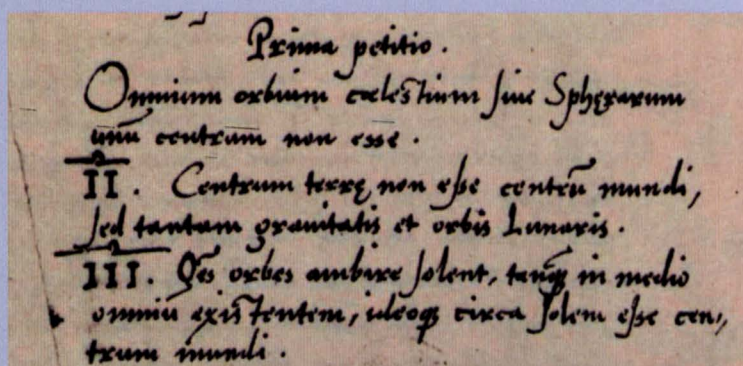 Prima petitio.
Omnium orbium cælestium siue Sphęrarum
unū centrum non esse.
II. Centrum terrę non esse centrū mundi,
sed tantum grauitatis et orbis Lunaris.
III. Oēs orbes ambire solem, tanq̃ in medio
omniū existentem, ideoq̃ circa solem esse cen,,
trum mundi.